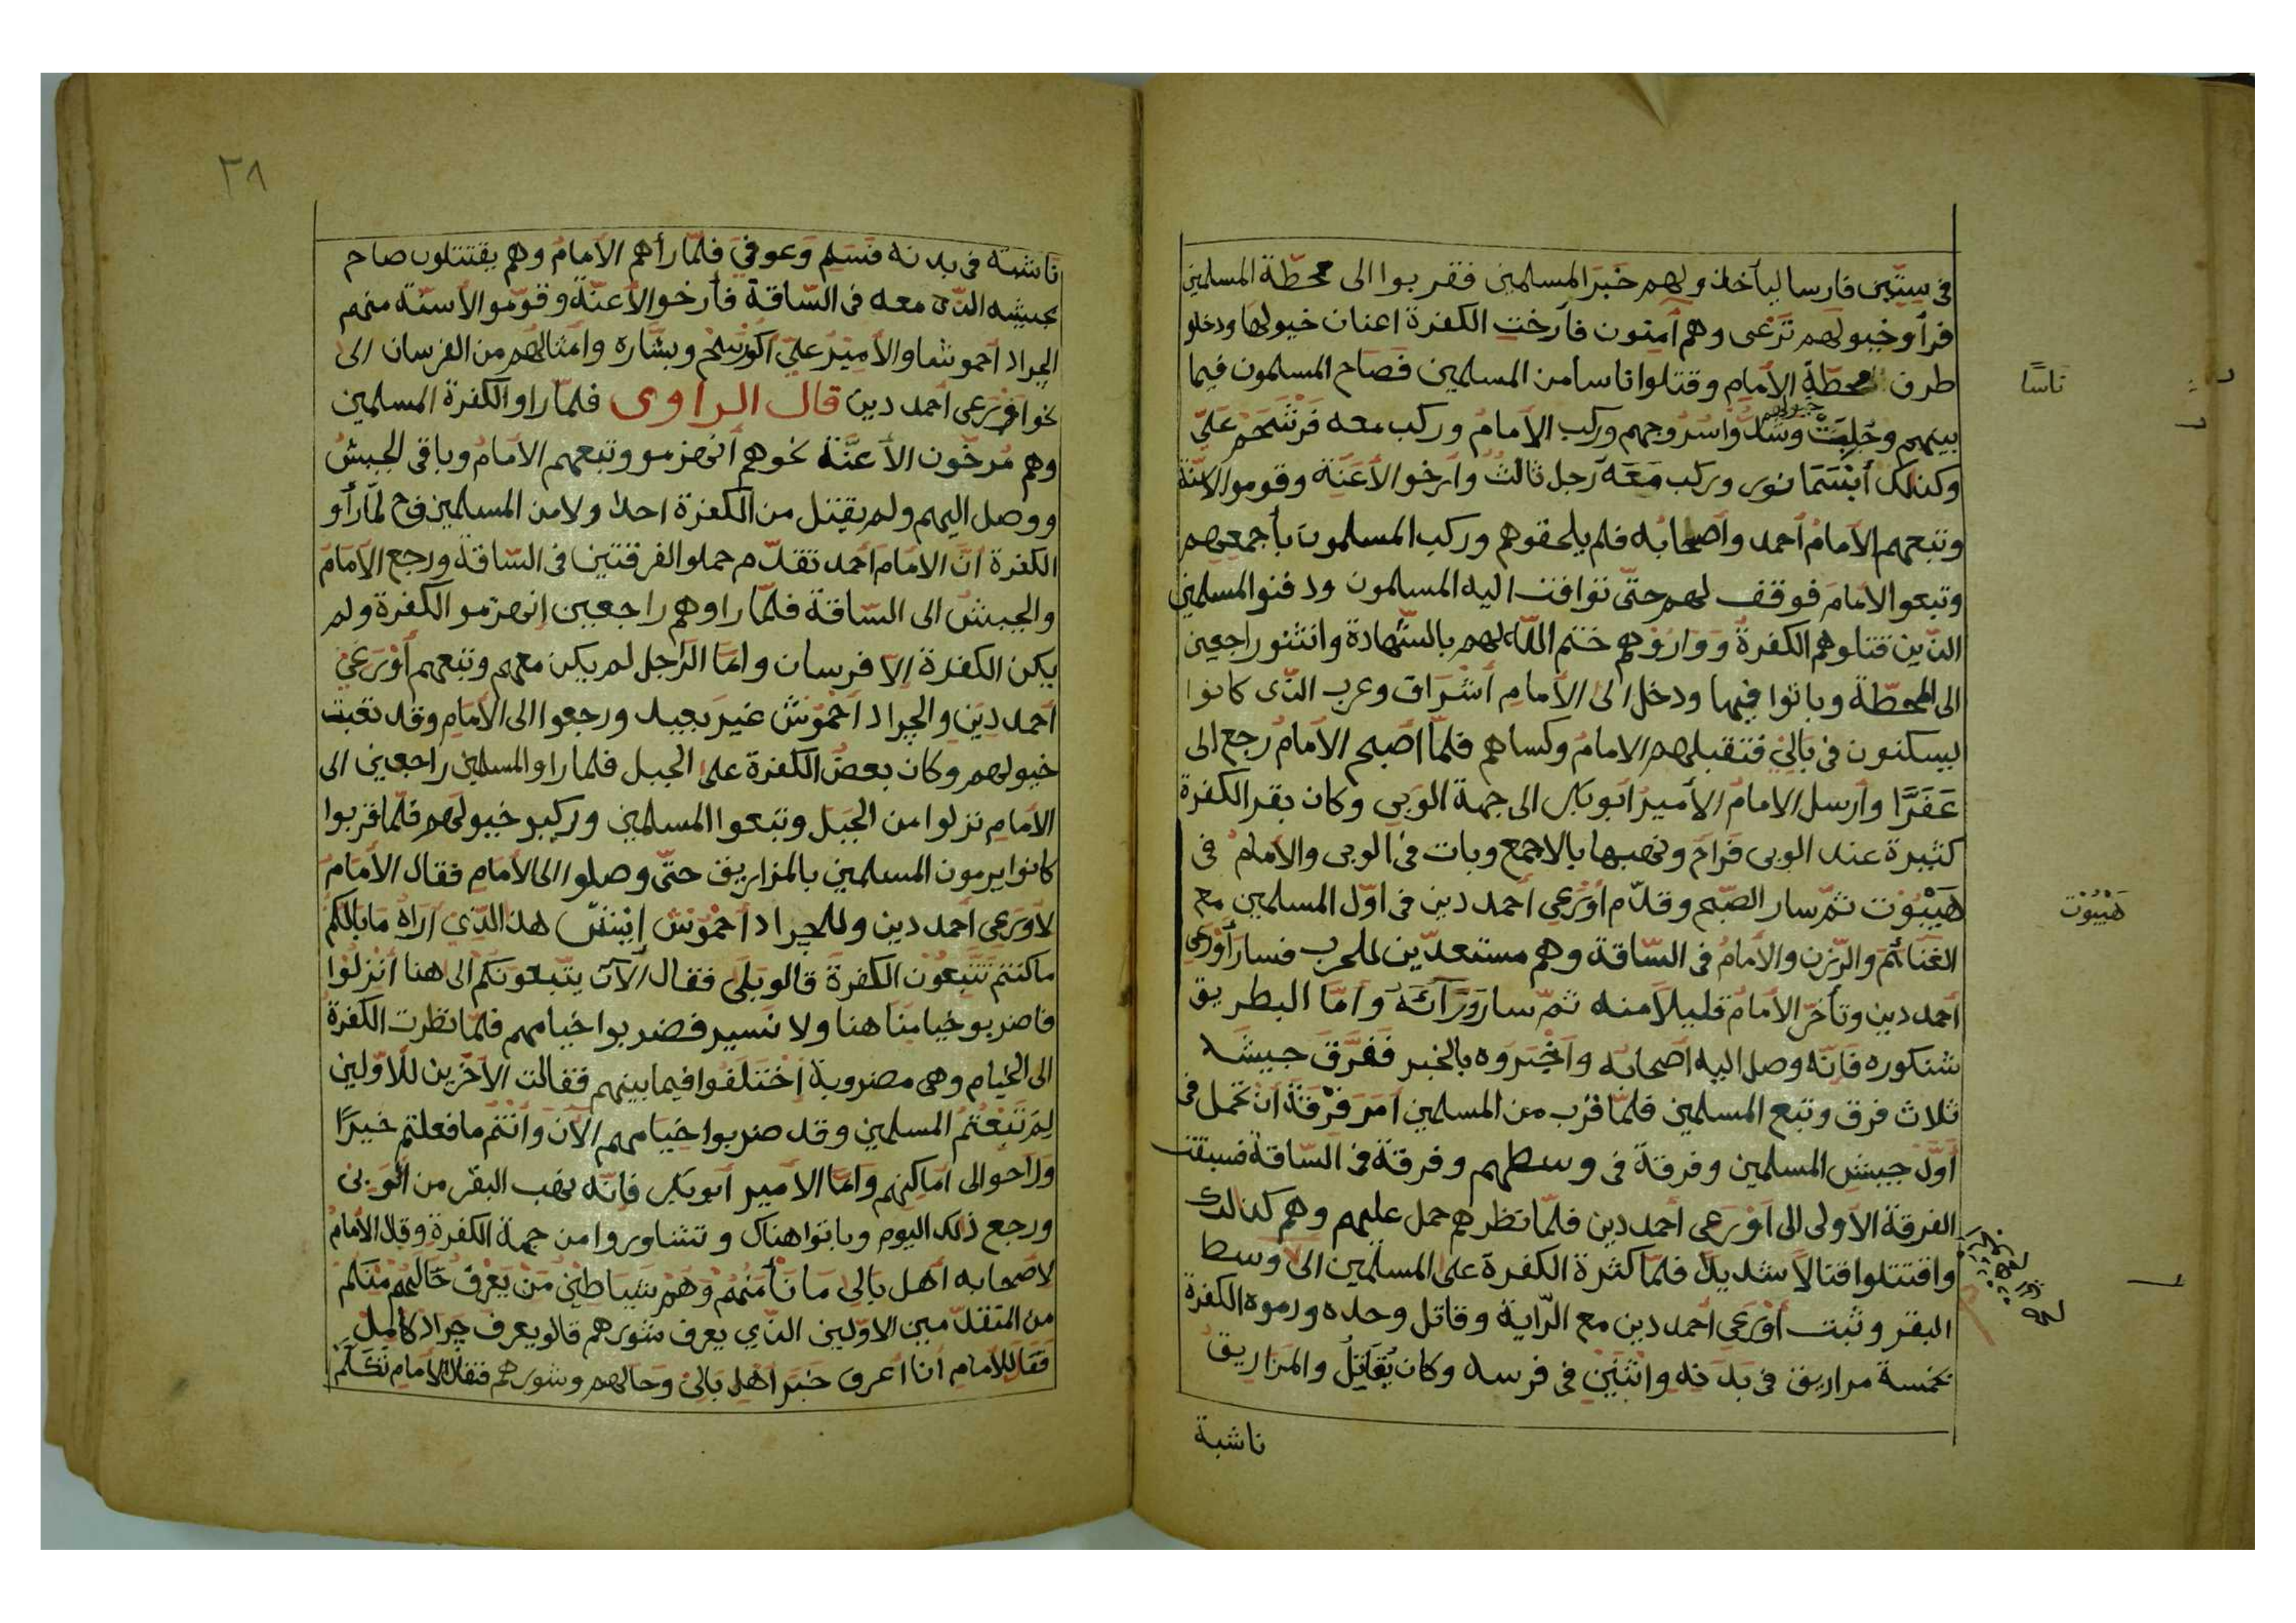 في ستين فارسا ليأخذ ولهم خبر المسلمين فقربوا الى محطّة المسلمين
فرأو خيولهم ترعى وهم آمنون فأرخت الكفرة اعنان خيولها ودخلو
طرف محطّة الإمام وقتلوا ناسا من المسلمين فصاح المسلمون فيما
ناسًا
بينهم وشدّوا سروجهم وركب الإمام وركب معه فرشحم علي
خيولهم
وكذلك أبسما نور وركب معه رجل ثالث وأرخو الأعنة وقومو الاسنّة
وتبعهم الإمام أحمد وأصحابه فلم يلحقوهم وركب المسلمون بأجمعهم
وتبعو الامام فوقف لهم حتّى توافت اليه المسلمون ودفنو المسلمين
الذين قتلوهم الكفرة وواروهم ختم الله لهم بالشهادة وانثنو راجعين
الى المحطّة وباتوا فيها ودخل الى الأمام أشراف وعرب الذي كانوا
يسكنون في بالي فتقبلهم الامام وكساهم فلمّا اصبح الامام رجع الى
عَفَرَّا وأرسل الامام الأمير ابو بكر الى جهة الوبي وكان بقر الكفرة
كثيرة عند الوبي فرام ونهبها بالاجمع وبات في الوبى والامام في
هَيْبُوت ثمّ سار الصّبح وقدّم أوْرَعى أحمد دين في اوّل المسلمين مع
هَيْبُوْت
الغنائم والرّزن والأمام في السّاقة وهم مستعدّين للحرب فسار أوْرَعى
أحمد دين وتأخر الامام قليلا منه ثمّ سار وَرَآئَهُ وأمّا البطريق
شنكوره فانّه وصل اليه اصحابه واخْبَروه بالخبر فَفَرَّق جيشَه
ثلاث فرق وتبع المسلمين فلمّا قرب من المسلمين أمر فرقة أن تحمل في
أوّل جيش المسلمين وفرقة في وسطهم وفرقة في السّاقة فسبقت
الفرقة الأولى الى أوْرَعى أحمد دين فلمّا نظرهم حمل عليهم وهم كذالك
واقتتلوا قتالاً شديدًا فلمّا كثرة الكفرة على المسلمين الى وسط
البقر وثبت أوْرَعي أحمد دين مع الرّاية وقاتل وحده ورموه الكفرة
بخمسة مراريق في بَدَنِه واثْنَيْن في فرسه وكان يُقَاتِلُ والمَزاريق
ناشبة
٣٨
ناشبته في بدنه فسَلِم وعوفي فلمّا رأهم الأمام وهم يقتتلون صاح
بجيشه الذي معه في السّاقة فأرخو الأعنّة وقوّمو الأسنّة منهم
الجراد احموشا والأمير عليّ أكورشح وبشّاره وأمثالهم من الفرسان الى
نحو اورعى أحمد دين قال الراوى فلمّا راو الكفرة المسلمين
وهم مُرخُون الأعنَّة نحوهم أنهزمو وتبعهم الامام وباقي الجيش
ووصل اليهم ولم يقتل من الكفرة احدًا ولا من المسلمين فح لمّا رأو
الكفرة أنّ الامام أحمد تقدّم حملو الفرقتين في السّاقة ورجع الإمام
والجيش الى السّاقة فلمّا راوهم راجعين إنهزمو الكفرة ولم
يكن الكفرة إلاّ فرسان وامّا الرّاجل لم يكن معهم وتبعهم أوْرَعِيْ
أحمد دين والجراد أحْمُوْش غير بعيد ورجعوا الى الأمام وقد تعبت
خيولهم وكان بعض الكفرة على الجبل فلما راو المسلمين راجعين الى
الأمام نزلوا من الجبل وتبعوا المسلمين وركبو خيولهم فلمّا قربوا
كانوا يرمون المسلمين بالمزاريق حتّى وصلوا الى الأمام فقال الأمام
لاورعى أحمد دين وللجراد أحْمُوْش إيْشَ هذا الذّي أراه مابالكم
ما كنتم تتبعُوْن الكفرة قالو بَلَى فقال الآن يتّبعونكم الى هنا أنْزلُوا
فاضربو خيامنا هنا ولا نسير فضربوا خيامهم فلمّا نظرت الكفرة
الى الخيام وهي مضروبة إخْتَلَفُوا فيما بينهم فقالت الآخرين للأوّلين
لِمَ تَبَعْتُم المسلمين وقد ضربوا خيامهم الآن وأنْتُم ما فعلتم خيرًا
وراحو الى اماكنهم وامّا الامير أبو بكر فانّه نهب البقر من الوبى
ورجع ذلك اليوم وباتوا هناك وتشاوروا من جهة الكفرة وقال الأمام
لاصحابه أهل بالى ما نأمَنُهُمْ وَهُم شياطِيْن مَنْ يَعْرفُ حَالَهُمْ مِنكم
من المتقدّمين الاوّلين الذّي يعرف شورهم قالو يعرف جراد كامل
فقال للامام أنا أعرف خبر أهل بالي وحالهم وشورهم فقال الامام تكَلَّم